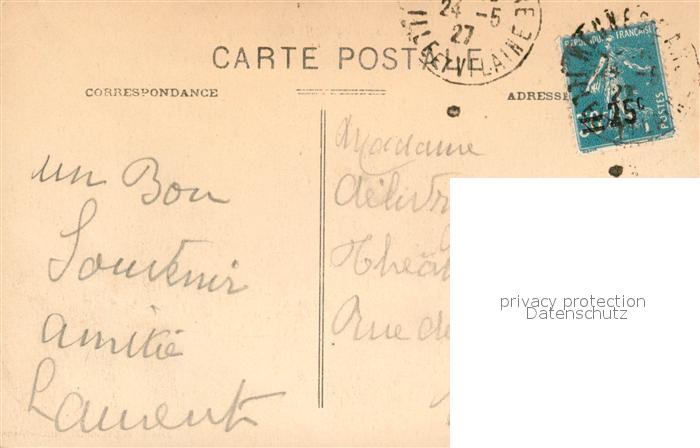 24 -5
27
ILLE-ET-VILAINE
CARTE POSTALE
CORRESPONDANCE
ADRESSE
REPUBLIQUE FRANÇAISE
25c
POSTES
un Bon
Souvenir
amitié
Laurent
Madame
Rue de
privacy protection
Datenschutz